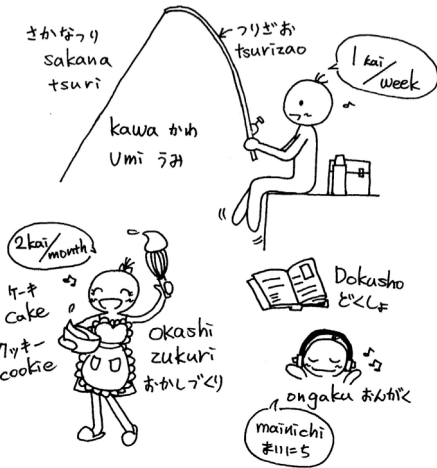 さかなつり
sakana
tsuri
つりざお
tsurizao
1 kai/
week
kawa かわ
Umi うみ
2kai/
month
ケーキ
cake
クッキー
cookie
okashi
zukuri
おかしづくり
Dokusho
どくしょ
ongaku おんがく
mainichi
まいにち